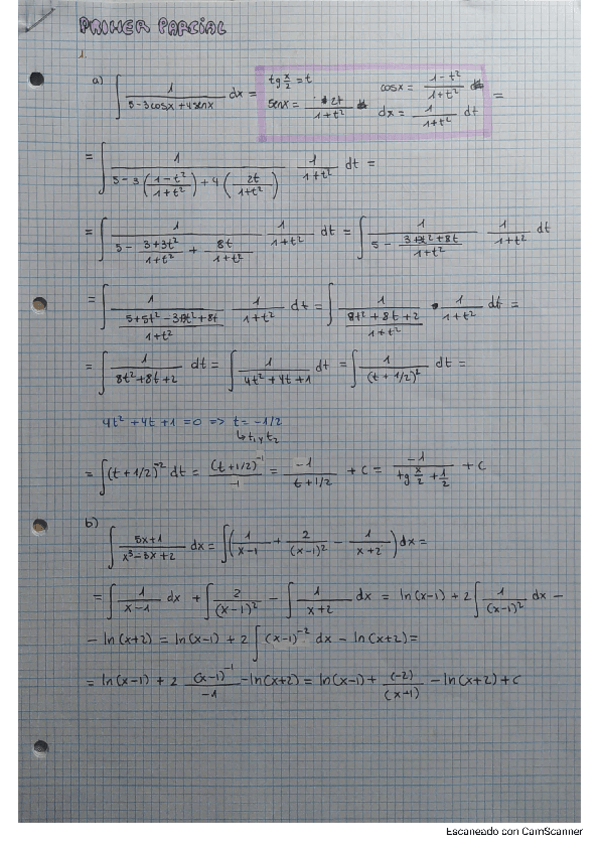 PRIMER PARCIAL
1.
a) ∫ 1/(5-3cosx+4senx) dx = tg x/2 = t cosx = (1-t²)/(1+t²)
senx = 2t/(1+t²) dx = 1/(1+t²) dt =
= ∫ 1/(5-3((1-t²)/(1+t²))+4(2t/(1+t²))) 1/(1+t²) dt =
= ∫ 1/(5 - (3+3t²)/(1+t²) + 8t/(1+t²)) 1/(1+t²) dt = ∫ 1/(5 - (3+3t²+8t)/(1+t²)) 1/(1+t²) dt
= ∫ 1/((5+5t²-3+3t²+8t)/(1+t²)) 1/(1+t²) dt = ∫ 1/((8t²+8t+2)/(1+t²)) · 1/(1+t²) dt =
= ∫ 1/(8t²+8t+2) dt = ∫ 1/(4t²+4t+1) dt = ∫ 1/(t+1/2)² dt =
4t²+4t+1=0 => t=-1/2
↳ t₁ y t₂
= ∫(t+1/2)⁻² dt = (t+1/2)⁻¹/-1 = -1/(t+1/2) + C = -1/(tg x/2 + 1/2) + C
b) ∫ (5x+1)/(x³-3x+2) dx = ∫(1/(x-1) + 2/(x-1)² - 1/(x+2)) dx =
= ∫ 1/(x-1) dx + ∫ 2/(x-1)² - ∫ 1/(x+2) dx = ln(x-1) + 2∫ 1/(x-1)² dx -
- ln(x+2) = ln(x-1) + 2∫(x-1)⁻² dx - ln(x+2) =
= ln(x-1) + 2 (x-1)⁻¹/-1 - ln(x+2) = ln(x-1) + (-2)/(x-1) - ln(x+2) + C
Escaneado con CamScanner